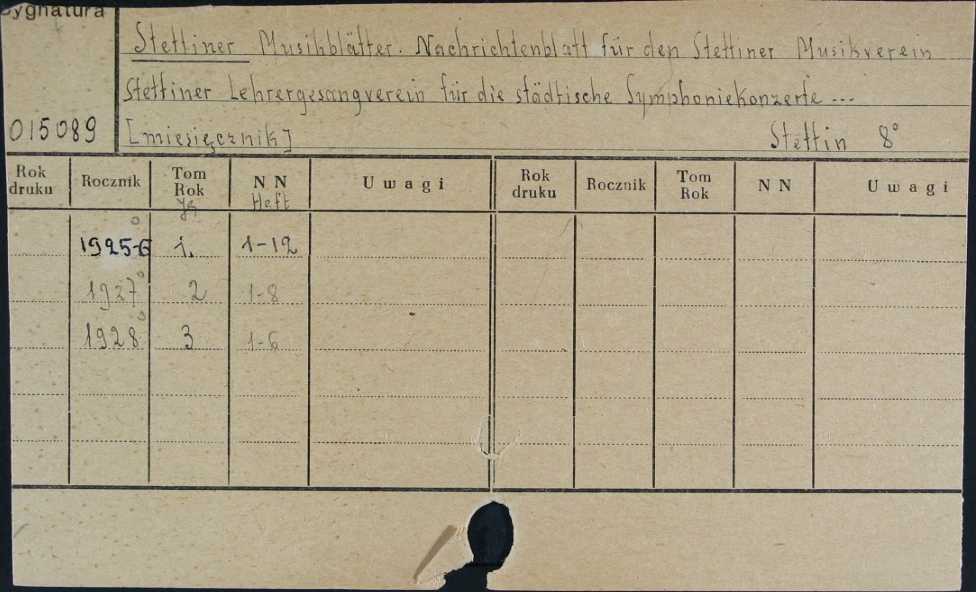 Sygnatura
Stettiner Musikblätter. Nachrichtenblatt für den Stettiner Musikverein
Stettiner Lehrergesangverein für die städtische Symphoniekonzerte ...
015089 [miesięcznik] Stettin 8°
Rok druku Rocznik Tom Rok NN Uwagi Rok druku Rocznik Tom Rok NN Uwagi
Jg Heft
1925-6° 1. 1-12
1927° 2 1-8
1928° 3 1-6